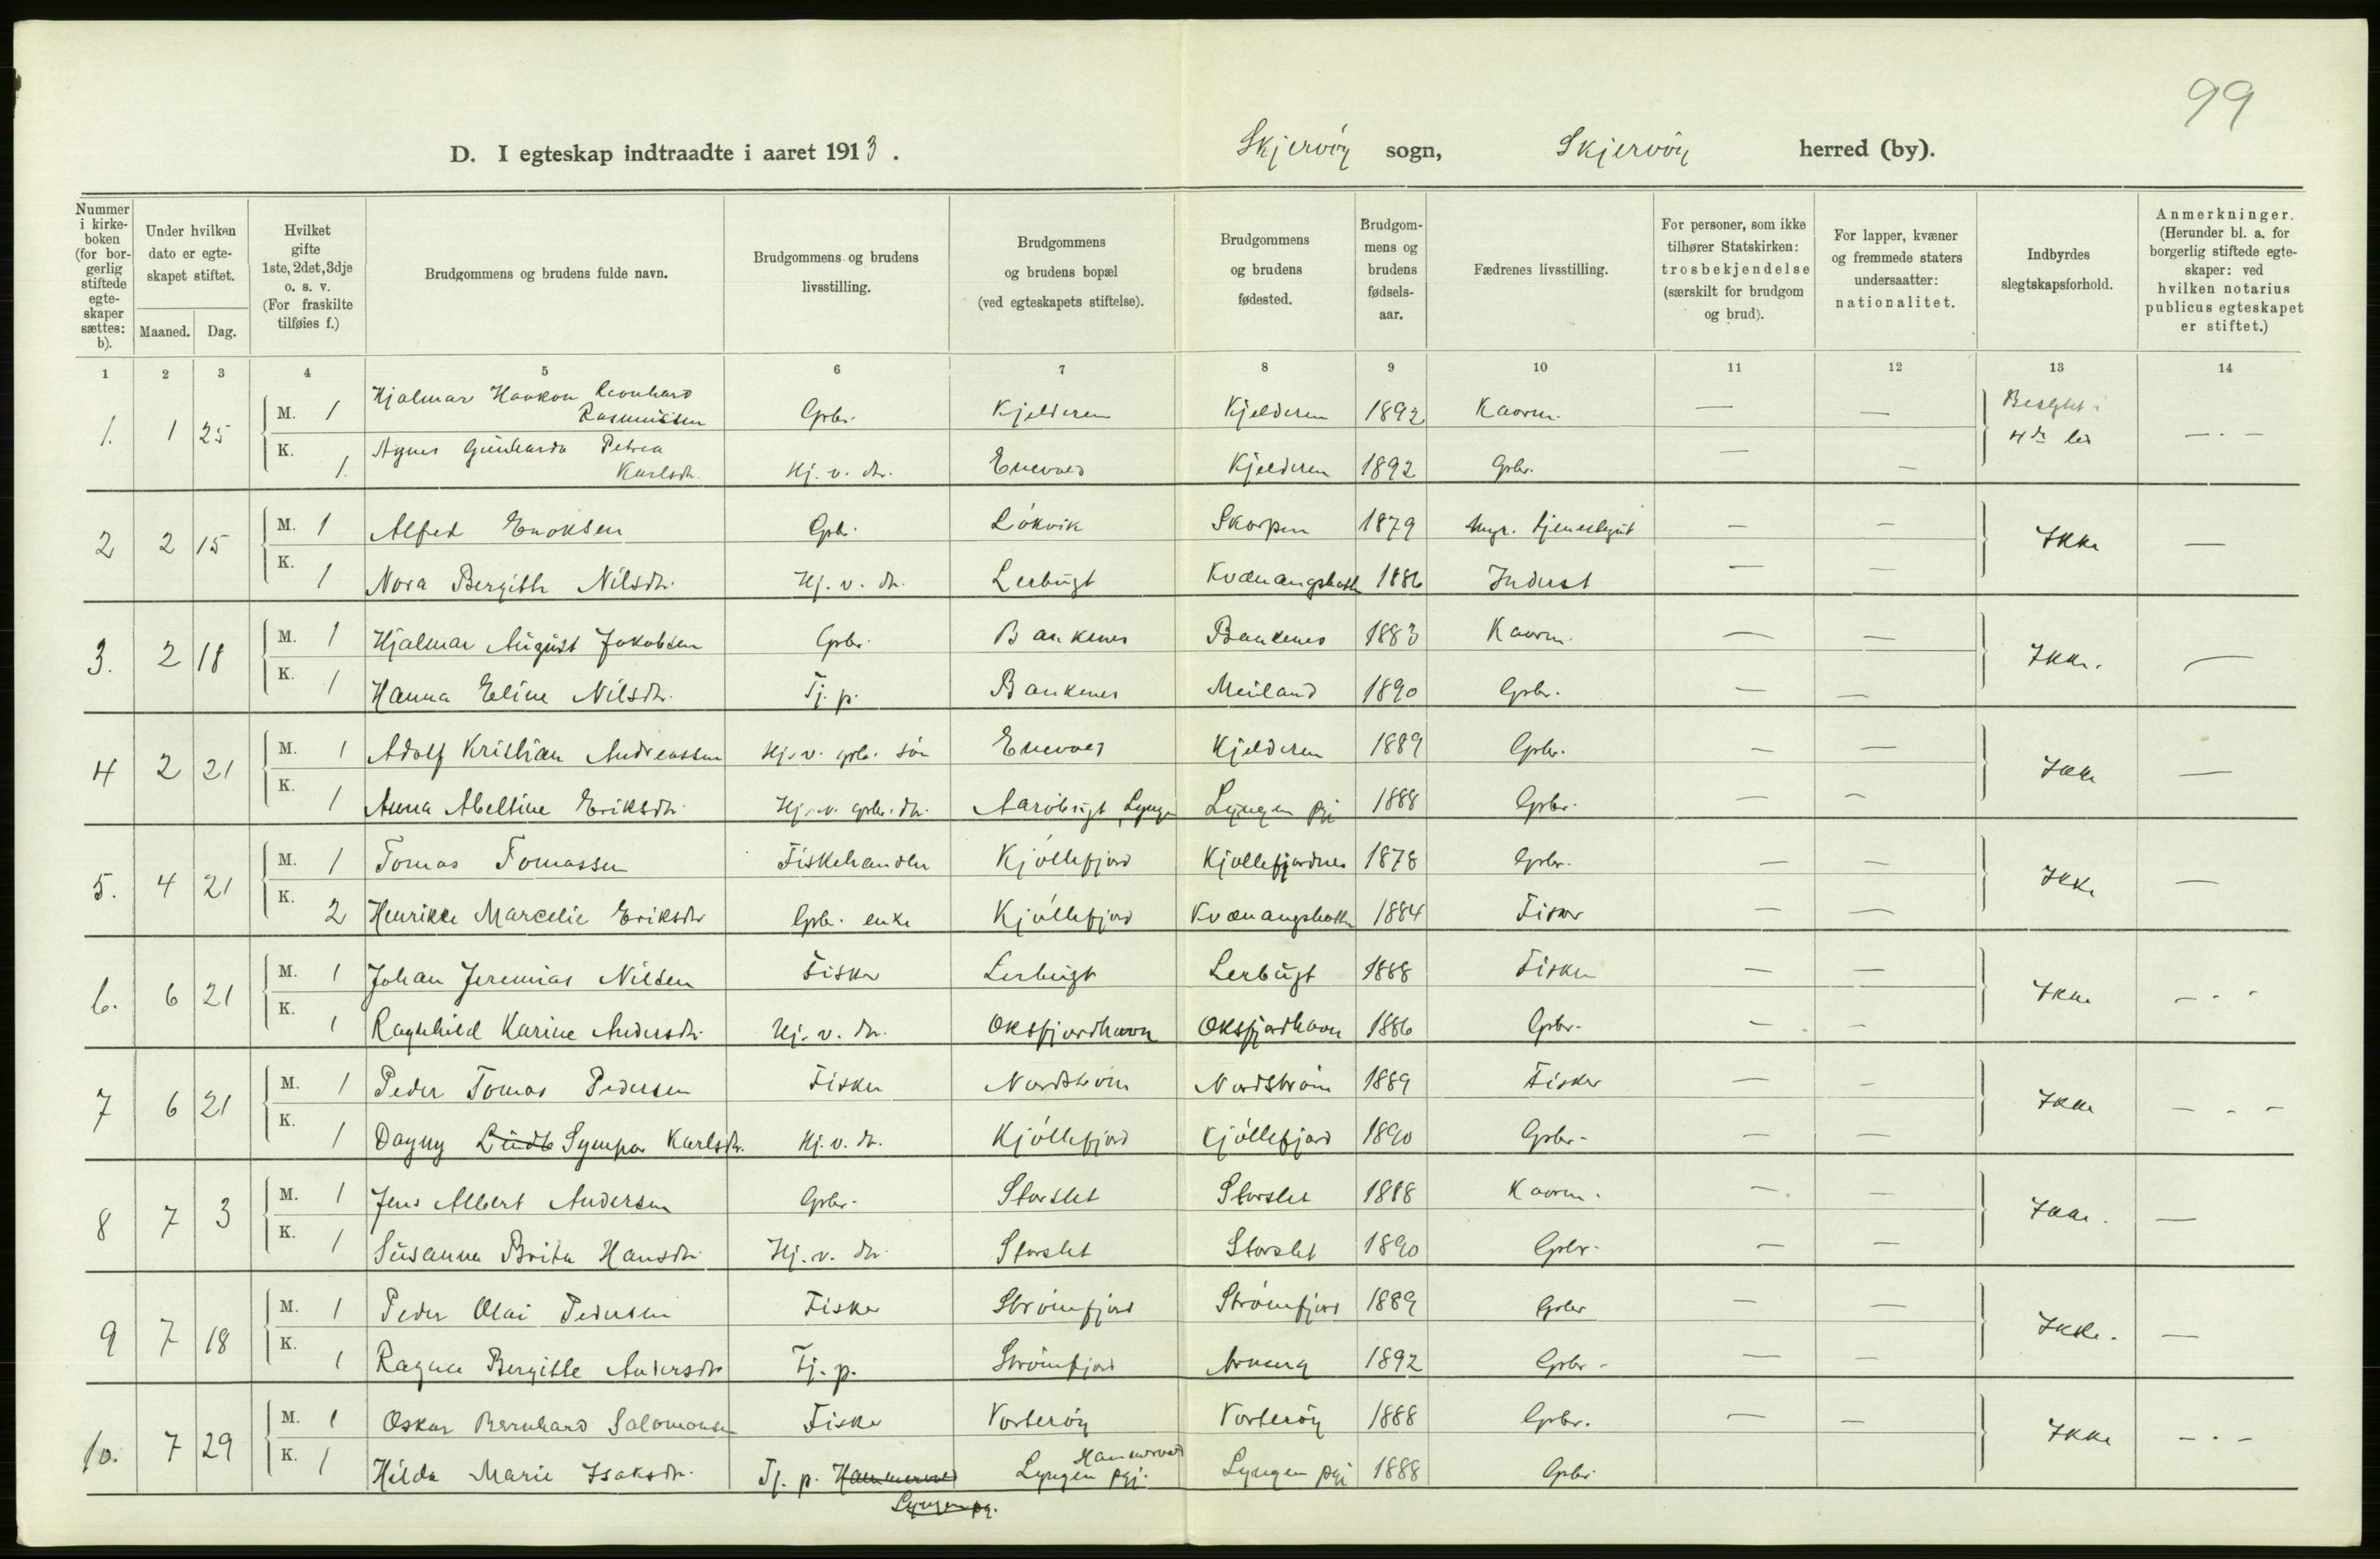 99
D. I egteskap indtraadte i aaret 1913. Skjervöy sogn, Skjervöy herred (by).
Nummer i kirkeboken (for borgerlig stiftede egteskaper sættes: b). Under hvilken dato er egteskapet stiftet. Maaned. Dag. Hvilket gifte 1ste, 2det, 3dje o. s. v. (For fraskilte tilføies f.) Brudgommens og brudens fulde navn. Brudgommens og brudens livsstilling. Brudgommens og brudens bopæl (ved egteskapets stiftelse). Brudgommens og brudens fødested. Brudgommens og brudens fødselsaar. Fædrenes livsstilling. For personer, som ikke tilhører Statskirken: trosbekjendelse (særskilt for brudgom og brud). For lapper, kvæner og fremmede staters undersaatter: nationalitet. Indbyrdes slegtskapsforhold. Anmerkninger. (Herunder bl. a. for borgerlig stiftede egteskaper: ved hvilken notarius publicus egteskapet er stiftet.)
1 2 3 4 5 6 7 8 9 10 11 12 13 14
1. 1 25 M. 1 Hjalmar Haakon Leonhard Rasmussen Gbr. Kjelderen Kjelderen 1892 Kaarm. — — Beslgtet i 4de led — . —
K. 1. Agnes Gunharda Petrea Karlsdr. Hj. v. dr. Enevold Kjelderen 1892 Gbr. — —
2 2 15 M. 1 Alfred Enoksen Gbr. Lökvik Skorpen 1879 Ugr. tjenestegut — — Ikke —
K. 1 Nora Bergitte Nilsdr. Hj. v. dr. Lerbugt Kvænangsbotn 1886 Inderst — —
3. 2 18 M. 1 Hjalmar August Jakobsen Gbr. Bankenes Bankenes 1883 Kaarm. — — Ikke. —
K. 1 Hanna Eline Nilsdr. Tj. p. Bankenes Meiland 1890 Gbr. — —
4 2 21 M. 1 Adolf Kristian Andreassen Hj. v. gbr. sön Enevold Kjelderen 1889 Gbr. — — Ikke —
K. 1 Anna Abeltine Eriksdr. Hj. v. gbr. dr. Aaröbugt, Lyngen Lyngen pgj 1888 Gbr. — —
5. 4 21 M. 1 Tomas Tomassen Fiskehandler Kjöllefjord Kjöllefjordnes 1878 Gbr. — — Ikke —
K. 2 Henrikke Marcelie Eriksdr Gbr. enke Kjöllefjord Kvænangsbotn 1884 Fisker — —
6. 6 21 M. 1 Johan Jeremias Nilsen Fisker Lerbugt Lerbugt 1888 Fisker — — Ikke — . -
K. 1 Ragnhild Karine Andersdr. Hj. v. dr. Oksfjordhavn Oksfjordhavn 1886 Gbr. — —
7 6 21 M. 1 Peder Tomas Pedersen Fisker Nordström Nordström 1889 Fisker — — Ikke — - -
K. 1 Dagny Sympa Karlsdr. Hj. v. dr. Kjöllefjord Kjöllefjord 1890 Gbr. — —
8 7 3 M. 1 Jens Albert Andersen Gbr. Storslet Storslet 1888 Kaarm. — — Ikke. —
K. 1 Susanna Brita Hansdr. Hj. v. dr. Storslet Storslet 1890 Gbr. — —
9 7 18 M. 1 Peder Olai Pedersen Fisker Strömfjord Strömfjord 1889 Gbr — — Ikke. —
K. 1 Ragna Bergitte Andersdr Tj. p. Strömfjord 1892 Gbr. — —
10. 7 29 M. 1 Oskar Bernhard Salomonsen Fisker Vorteröy Vorteröy 1888 Gbr. — — Ikke — . —
K. 1 Hilda Marie Isaksdr. Tj. p. Hammervold Lyngen pgj. Hammervold Lyngen pgj. Lyngen pgj 1888 Gbr